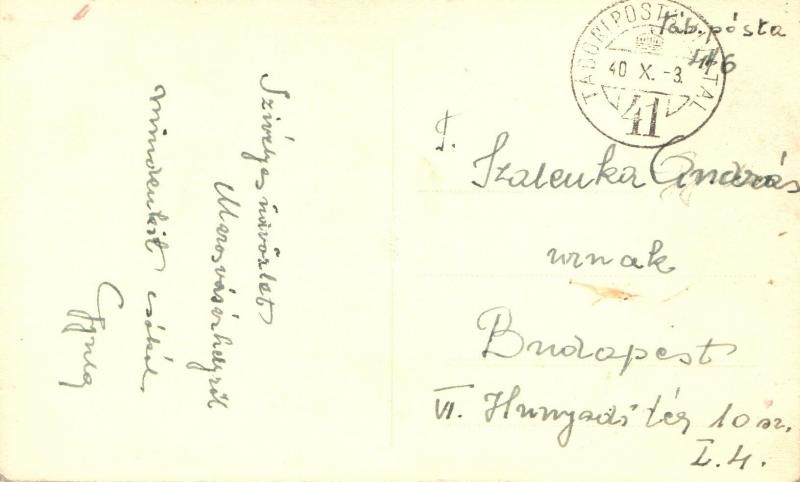 Szivélyes üdvözlet
Marosvásárhelyről
mindenkit csókol
Gyula
Táb. pósta
446
TÁBORI POSTAHIVATAL
40 X. -3.
41
T.
Szalenka András
urnak
Budapest
VI. Hunyadi tér 10 sz.
I. 4.